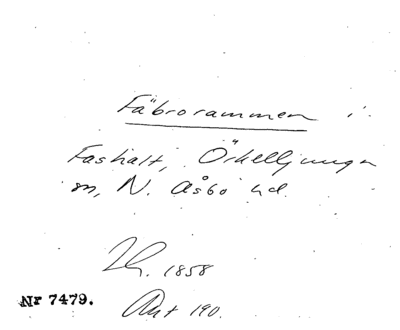 Fäbrorammen i
Fashalt, Örkelljunga
sn, N. Åsbo hd.
Th. 1858
Nr 7479.
Ant 190.